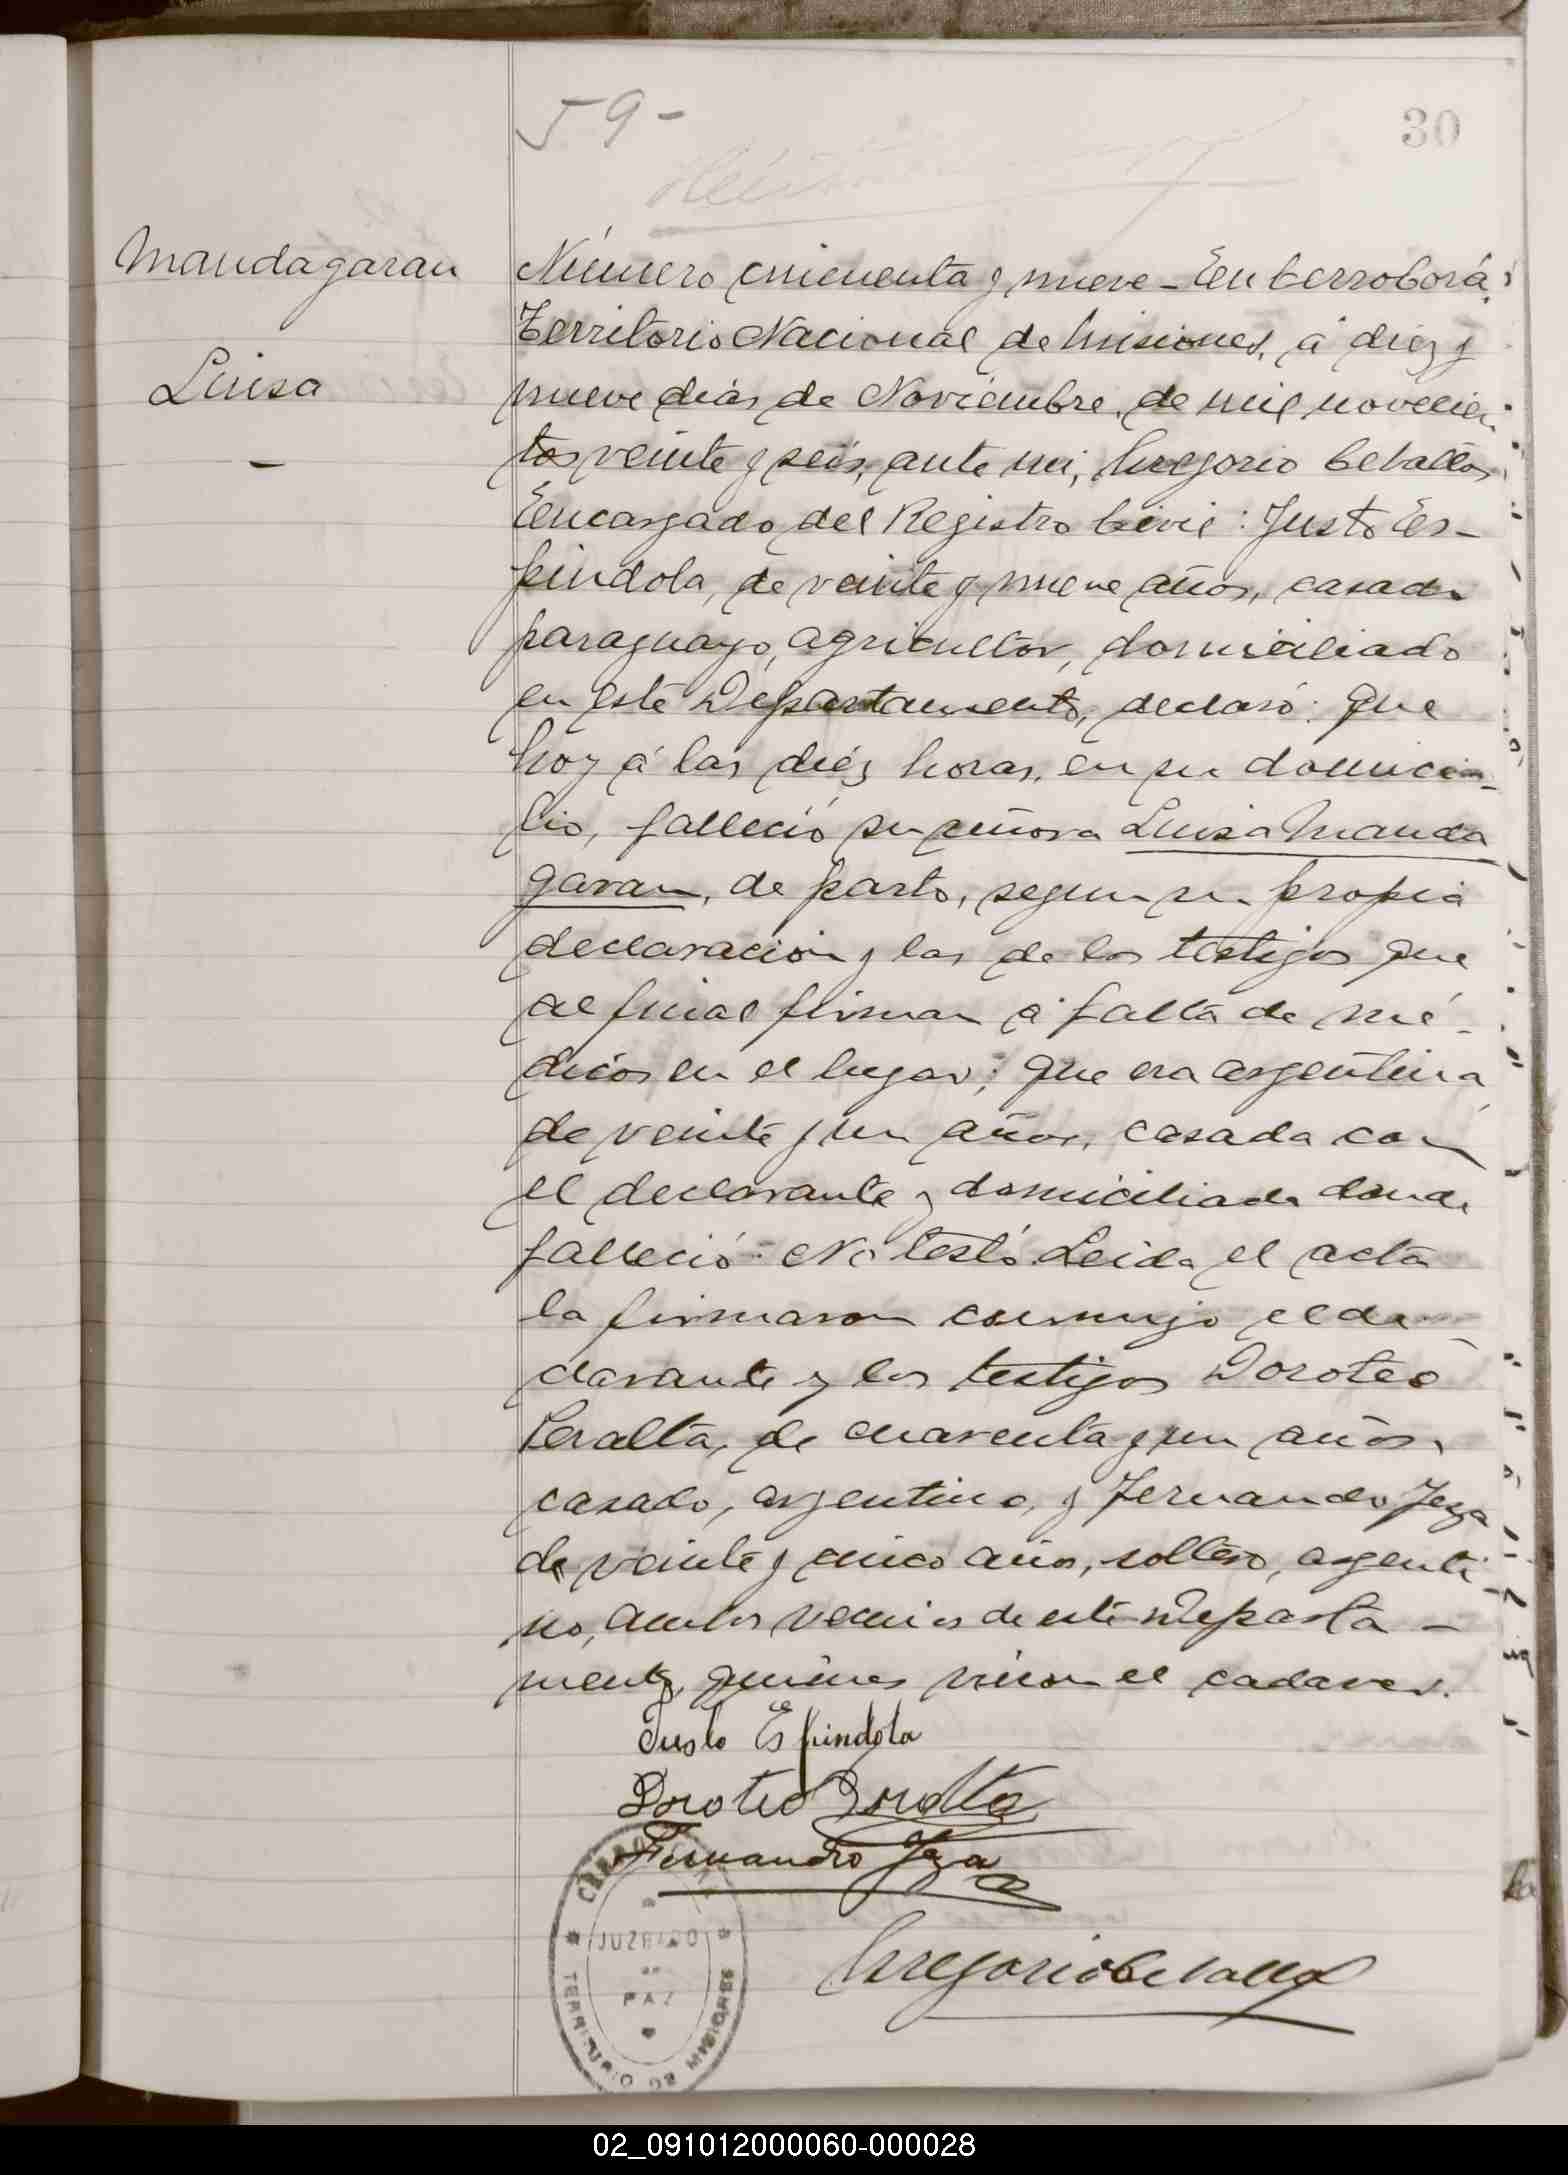 59-
30
Mandagaran
Luisa
Número cincuenta y nueve - En Cerro Corá,
Territorio Nacional de Misiones, á diez y
nueve dias de Noviembre, de mil novecien
tos veinte y seis, ante mi, Gregorio Ceballos
Encargado del Registro Civil: Justo Es-
pindola, de veinte y nueve años, casado
paraguayo, agricultor, domiciliado
en este Departamento, declaró: que
hoy á las diéz horas, en su domici-
lio, falleció su señora Luisa Manda
garan, de parto, segun su propia
declaración y las de los testigos que
al final firman á falta de mé-
dicos en el lugar; que era argentina
de veinte y un años, casada con
el declarante y domiciliada donde
falleció. No testó. Leida el acta
la firmaron conmigo el de-
clarante y los testigos Doroteo
Peralta, de cuarenta y un años,
casado, argentino, y Fernando Jeza
de veinte y cinco años, soltero, argenti
no, ambos vecinos de este Departa-
mento, quienes vieron el cadaver.
Justo Espindola
Doroteo Peralta
Fernando Jeza
CERRO CORÁ
JUZGADO
DE
PAZ
TERRITORIO DE MISIONES
Gregorio Ceballos
02_091012000060-000028